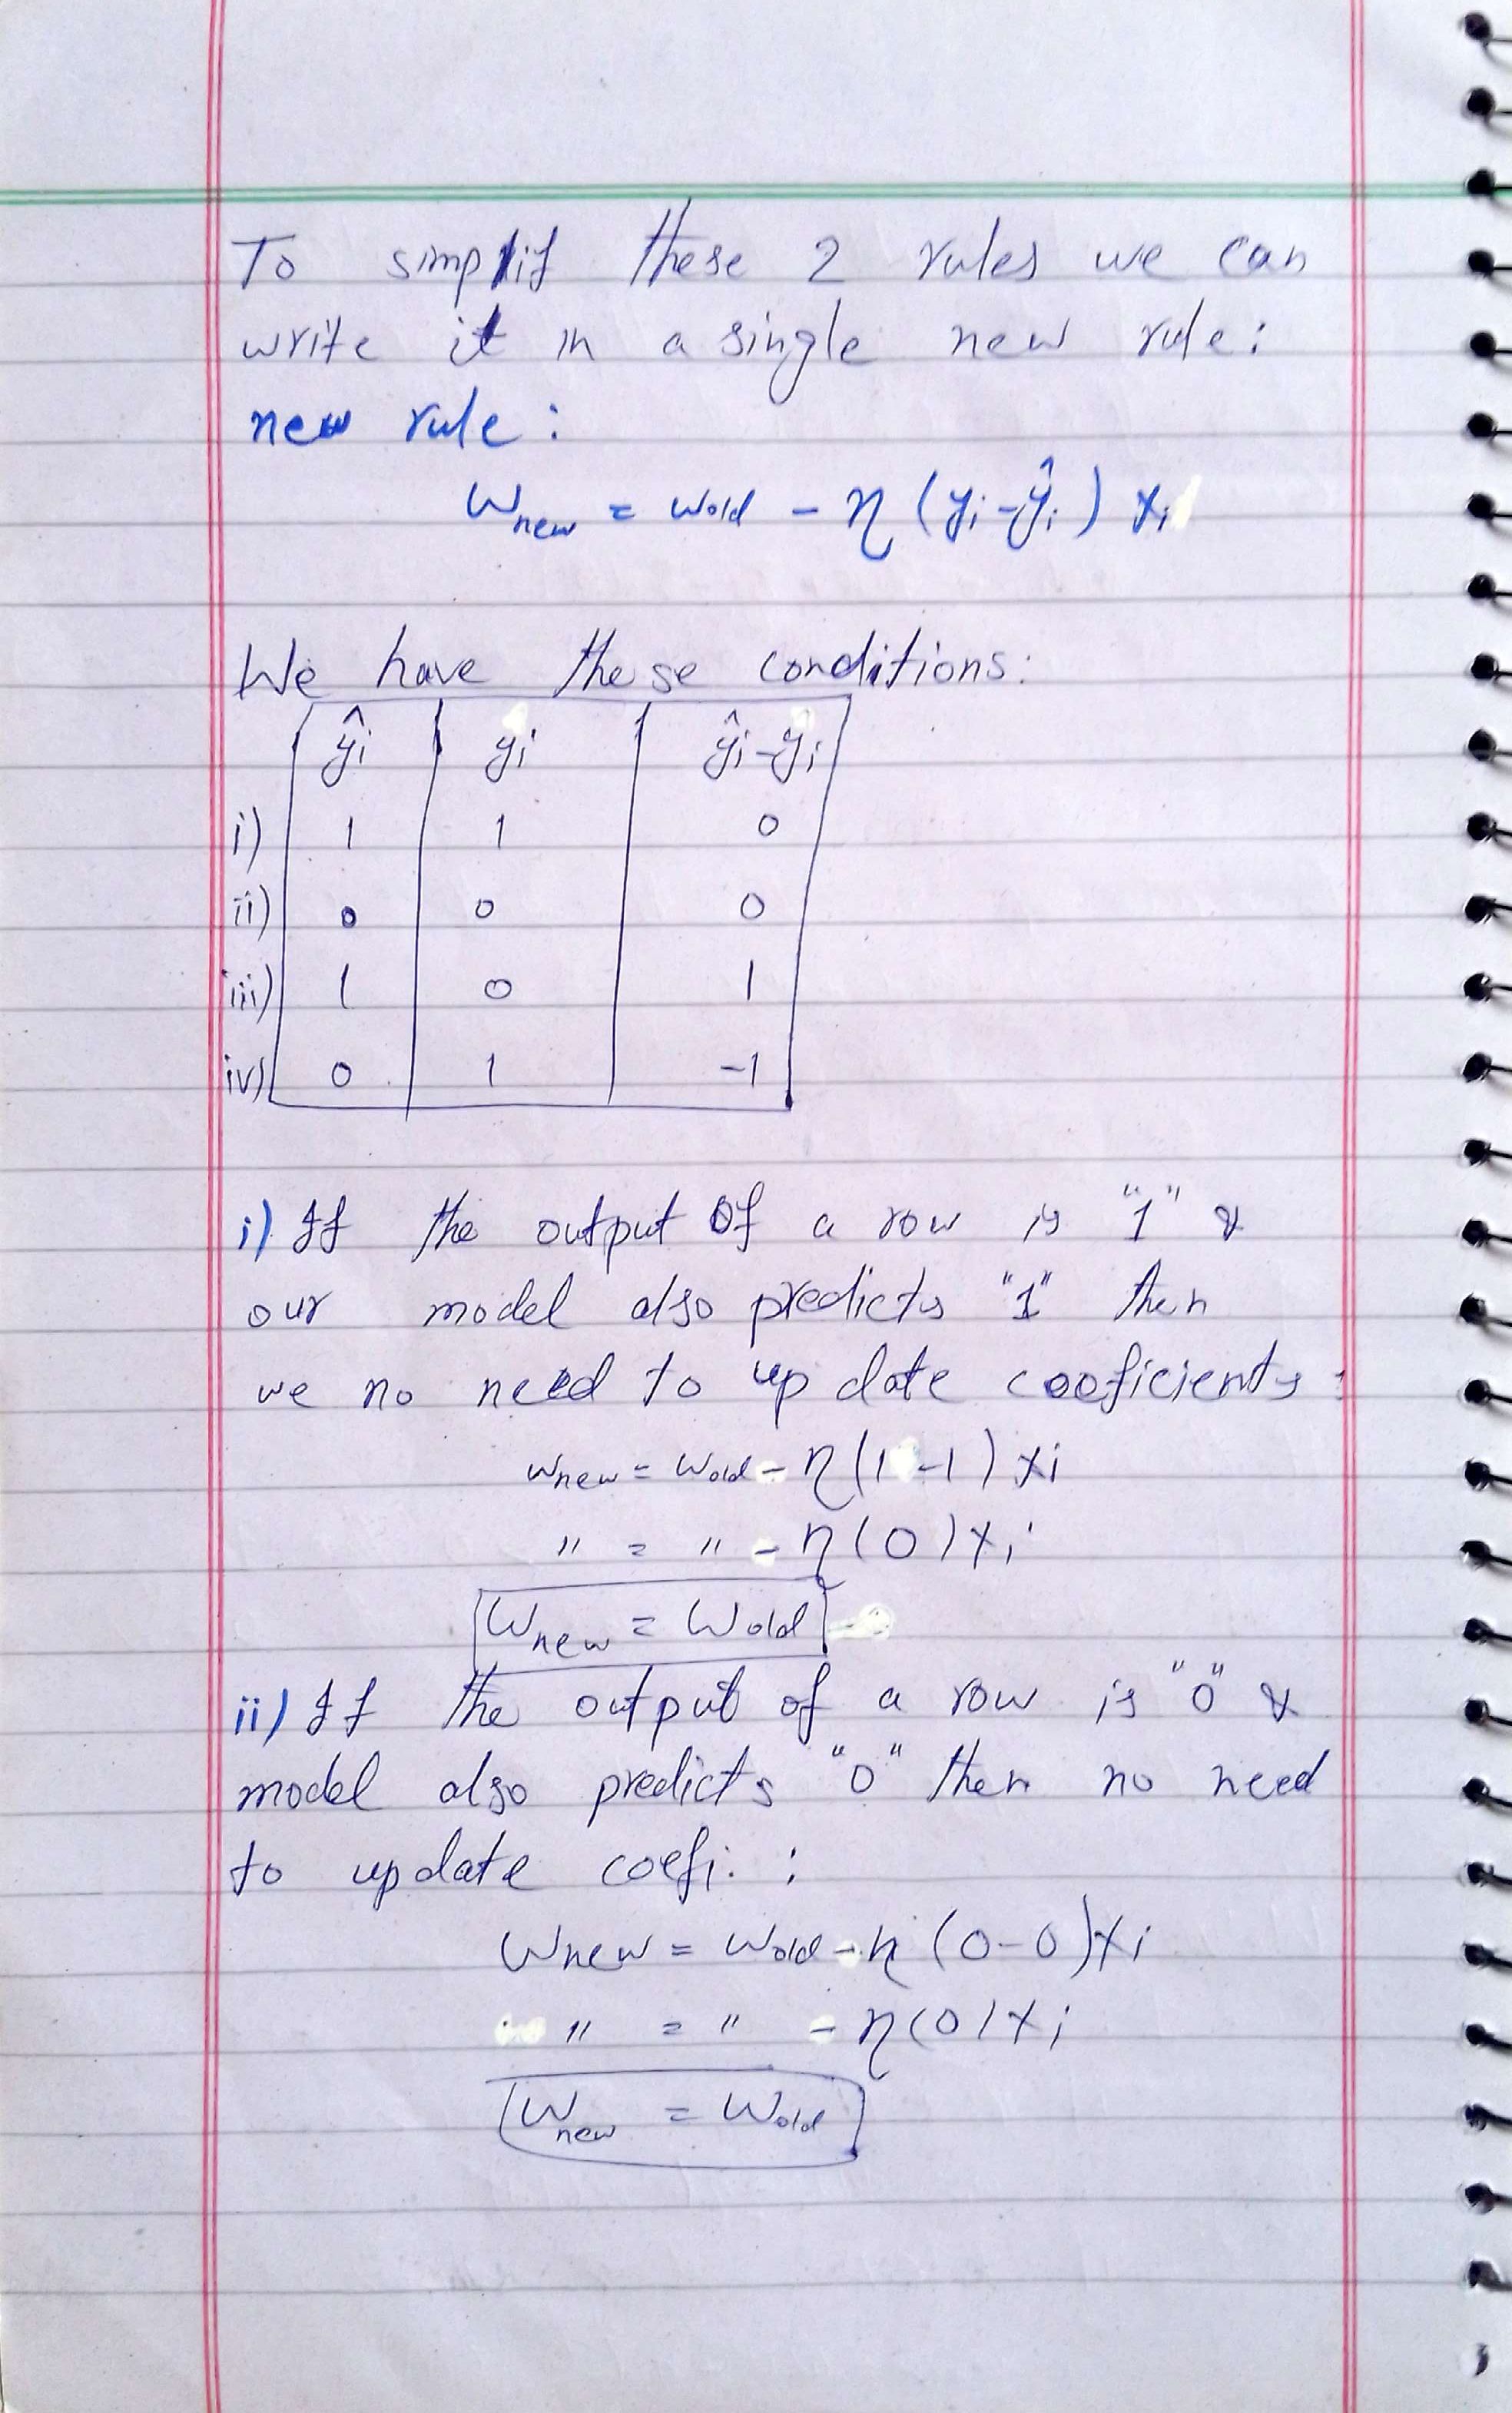 To simplif these 2 rules we can
write it in a single new rule:
new rule:
Wnew = Wold - η (yi - ŷi) xi
We have these conditions:
ŷi yi ŷi - yi
i) 1 1 0
ii) 0 0 0
iii) 1 0 1
iv) 0 1 -1
i) If the output of a row is "1" &
our model also predicts "1" then
we no need to update cooficients:
Wnew = Wold - η (1 - 1) xi
" = " - η (0) xi
Wnew = Wold
ii) If the output of a row is "0" &
model also predicts "0" then no need
to update coefi. :
Wnew = Wold - η (0 - 0) xi
" = " - η (0) xi
Wnew = Wold